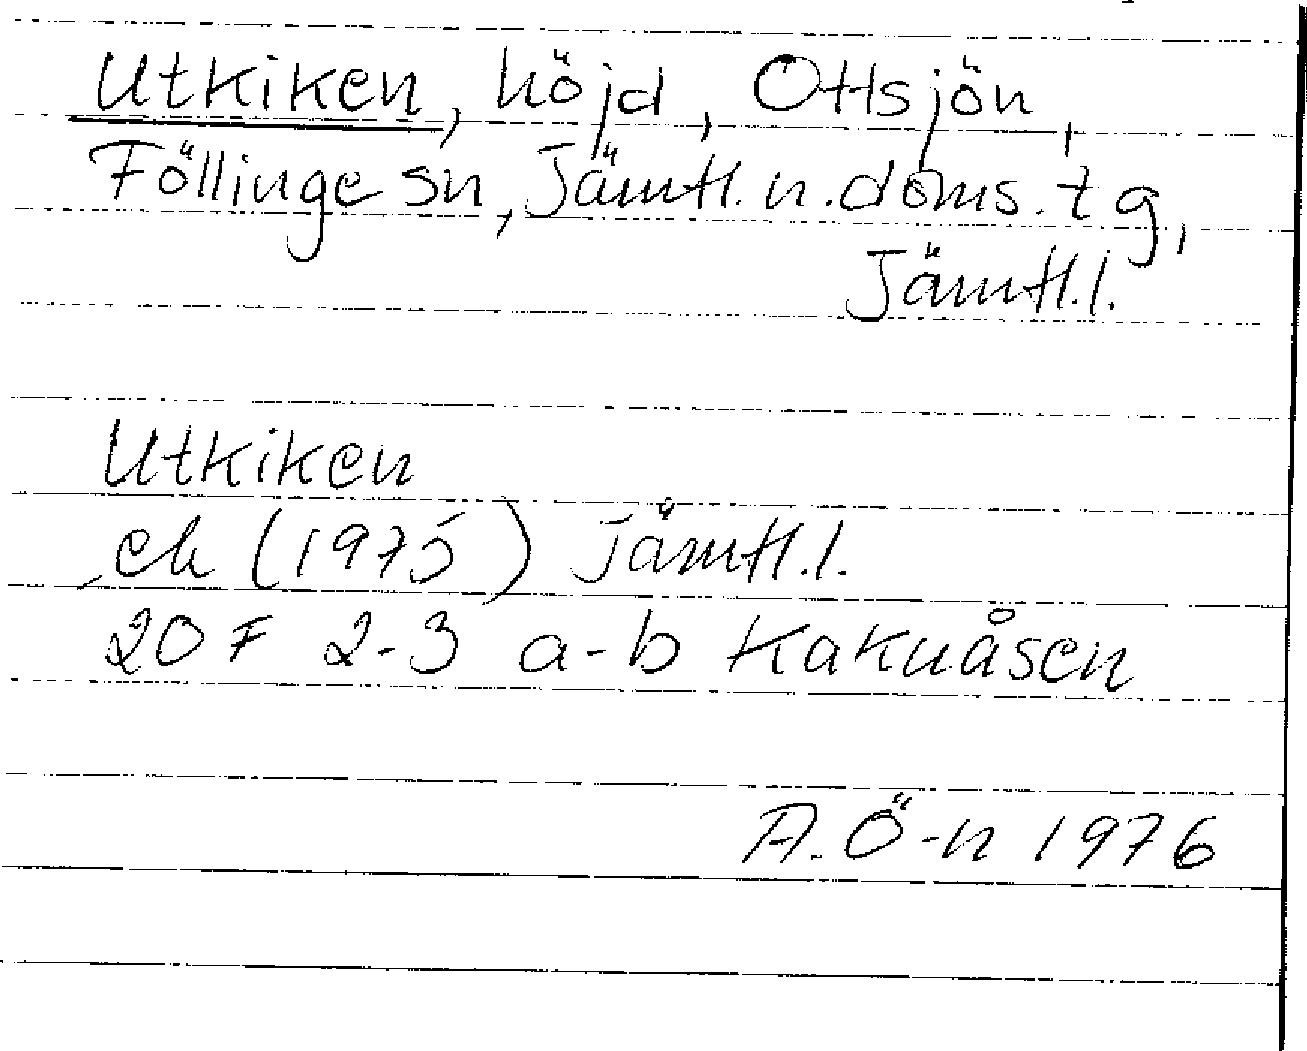 Utkiken, höjd, Ottsjön,
Föllinge sn, Jämtl. n. doms. tg,
Jämtl.l.
Utkiken
ek (1975) Jämtl.l.
20 F 2-3 a-b Kakuåsen
A. Ö-n 1976